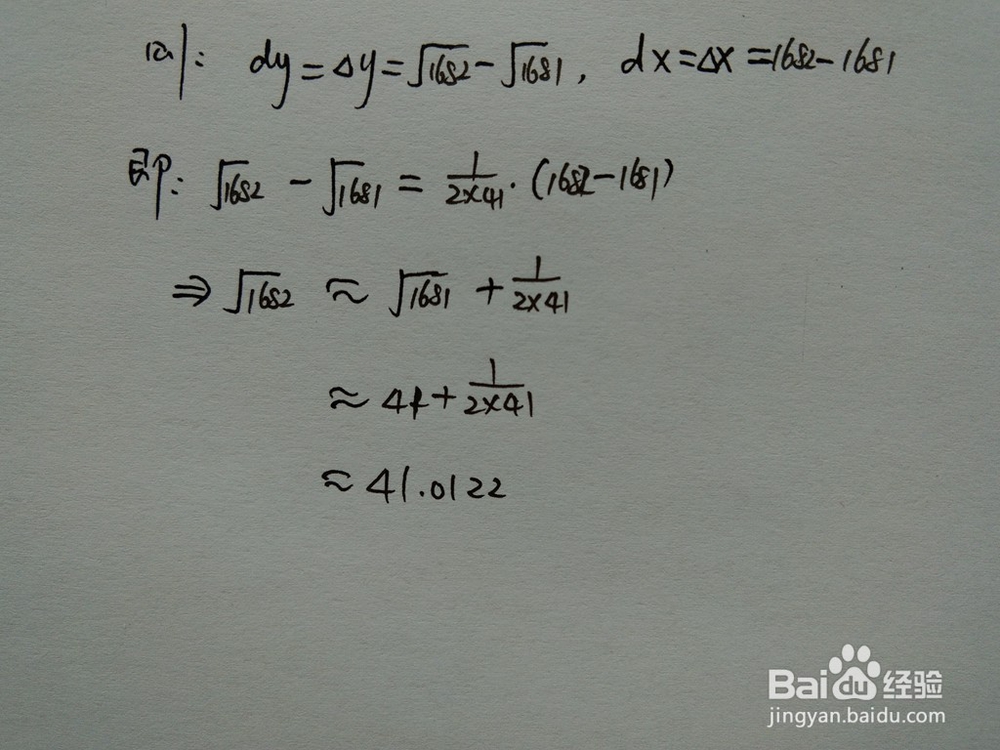 则: dy=Δy=√1682-√1681, dx=Δx=1682-1681
即: √1682 - √1681 = 1/(2×41)·(1682-1681)
⇒ √1682 ≈ √1681 + 1/(2×41)
≈ 41+1/(2×41)
≈ 41.0122
Baidu经验
jingyan.baidu.com